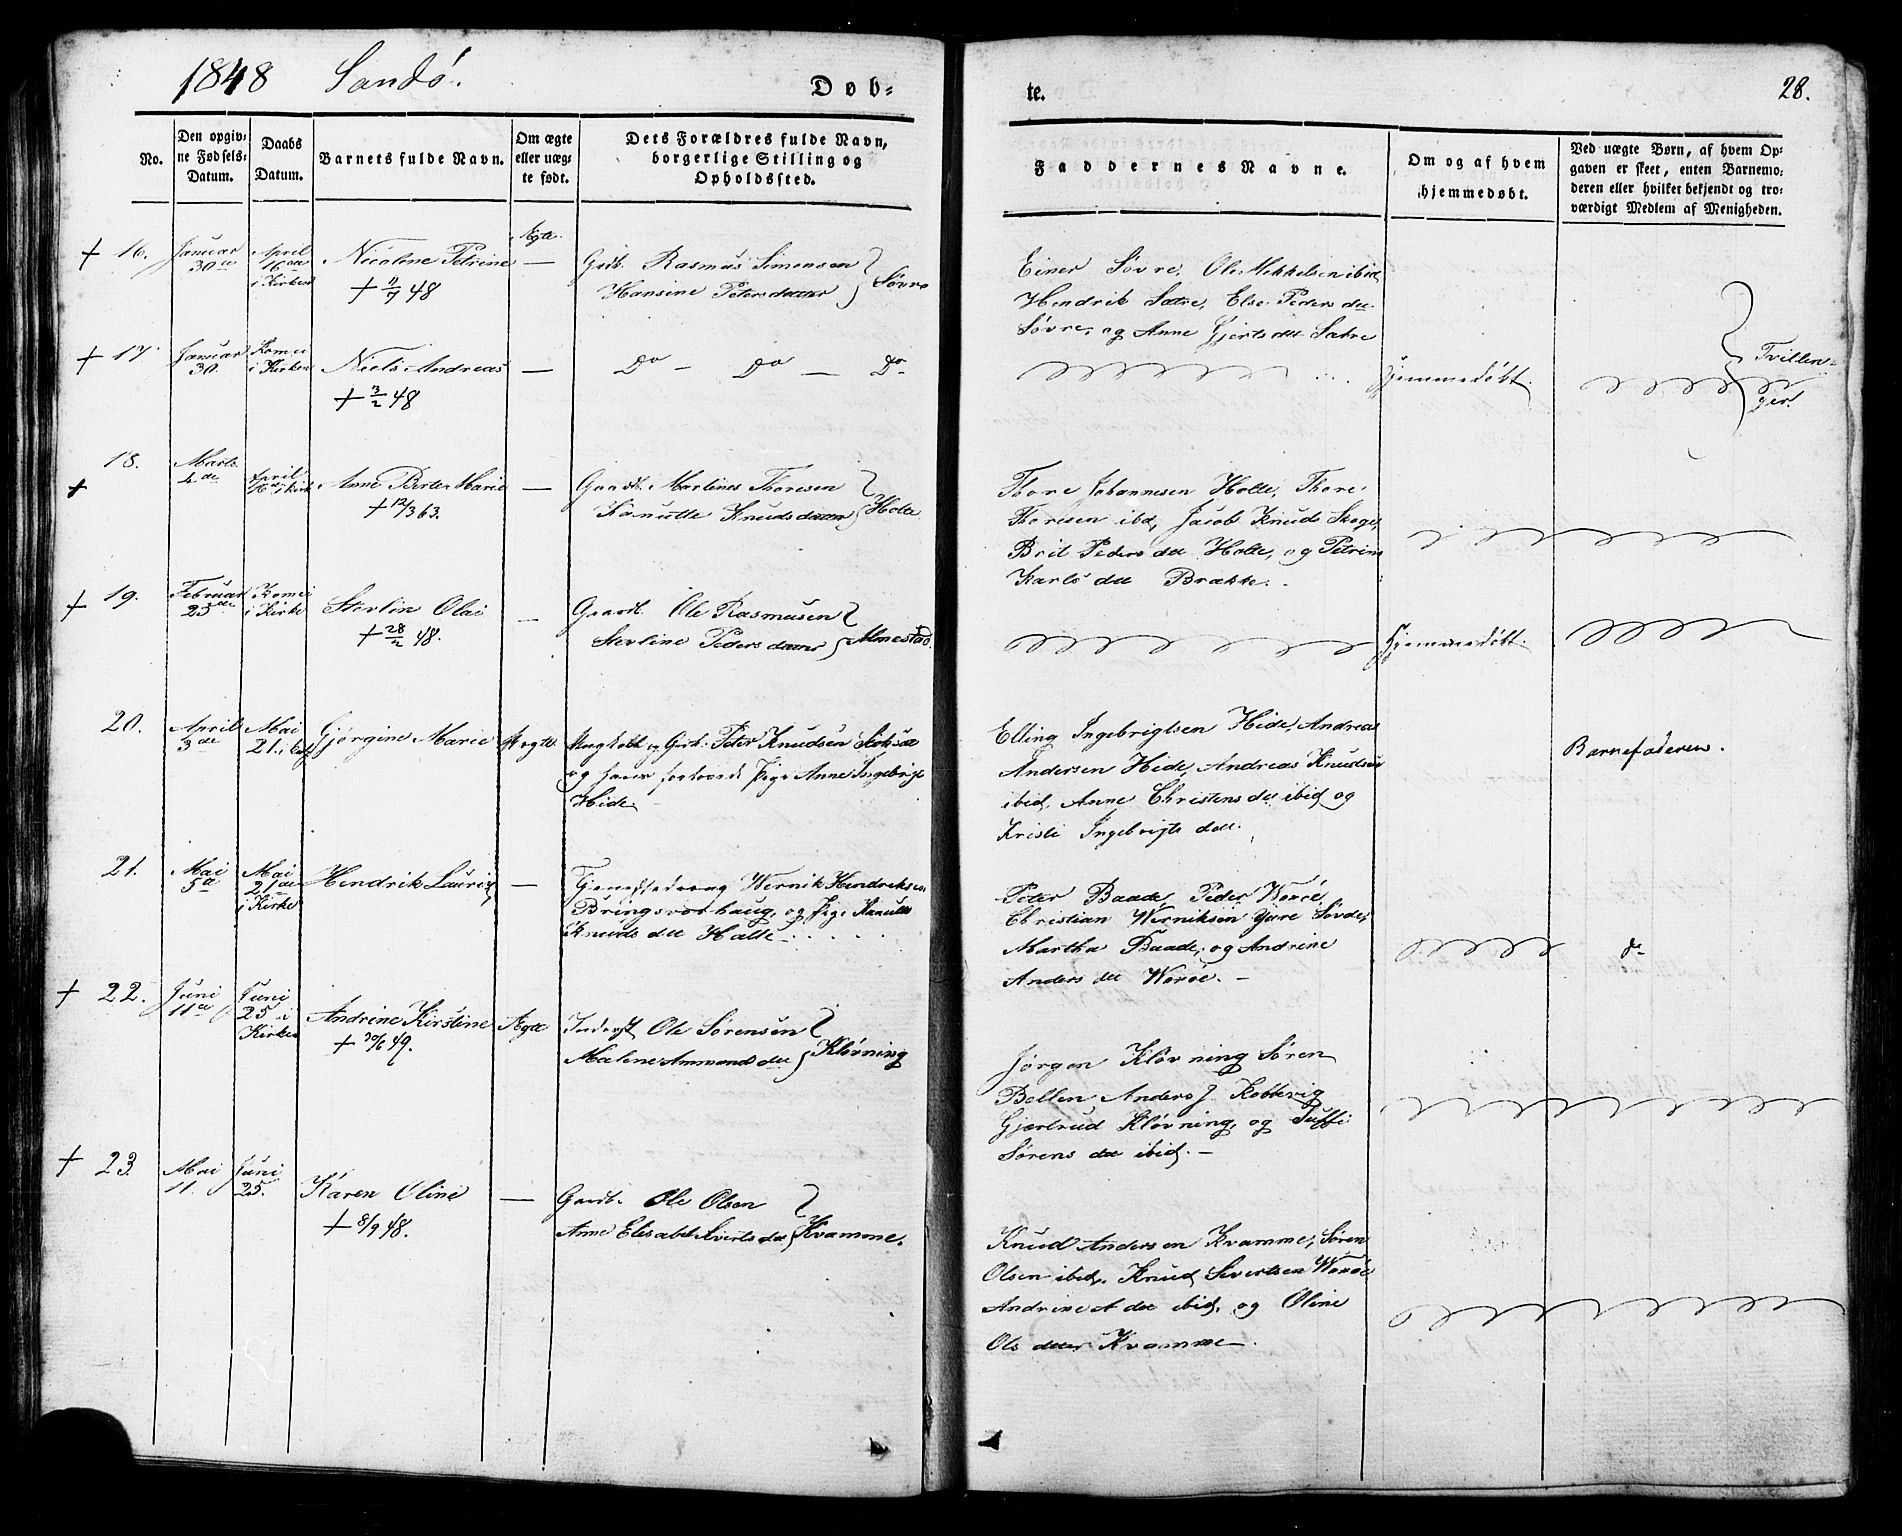 1848 Sandö.
Døb-
te.
28.
No.
Den opgiv-
ne Fødsels-
Datum.
Daabs
Datum.
Barnets fulde Navn.
Om ægte
eller uæg-
te født.
Dets Forældres fulde Navn,
borgerlige Stilling og
Opholdssted.
Faddernes Navne.
Om og af hvem
hjemmedøbt.
Ved uægte Børn, af hvem Op-
gaven er skeet, enten Barnemo-
deren eller hvilket bekjendt og tro-
værdigt Medlem af Menigheden.
+ 16.
Januar
30
April
16
i Kirken
Nicoline Petrine
+ 11/7 48
Ægte
—
Grdb. Rasmus Simensen
Hansine Petersdatter
Søvre
Einer Søvre, Ole Mekkelsen ibid,
Hendrik Sætre, Else Peders dtt
Søvre, og Anne Gjerts dtt Sætre
+ 17.
Januar
30.
i Kirken
Niels Andreas
+ 3/2 48
—
Do — Do — Do
Hjemmedøbt.
Tvillin-
ger.
+ 18.
Marts
4de
April
16de i Kirk
Anne Berte Marie
+ 12/3 63.
—
Gaardb. Martines Thoresen
Kanutte Knudsdatter
Holte
Thore Johannesen Holte, Thore
Thoresen ibd, Jacob Knuds Skoge,
Brit Peders dtt Holte, og Petrine
Karls dtt Brække.
+ 19.
Februar
23de
i Kirke
Sterlin Olai
+ 28/2 48.
—
Gaardb. Ole Rasmusen
Sterline Pedersdatter
Almestad.
Hjemmedøbt.
20.
April
3de
Mai
21.
Gjørgine Marie
Uægte
Ungkarl og Grdb. Peter Knudsen
og Pige Anne Ingebrigts
Hide
Elling Ingebrigtsen Hide, Andreas
Andersen Hide, Andreas Knudsen
ibid, Anne Christens dtt ibid og
Kristi Ingebrigts dtt.
Barnefaderen.
21.
Mai
5
Mai
21de
i Kirke
Hendrik Lauriz
—
Tjenestedreng Wernik Hendriksen
Bringsvorhaug, og Pige Kanutte
Knuds dtt Holte
Peter Baade, Peder Worøe,
Christian Werniksen Yttre Søvde,
Martha Baade, og Andrine
Anders dtt Worøe. —
do
+ 22.
Juni
11
Juni
25 i
Kirken
Andrine Kirstine
+ 30/6 49.
Ægte
Inderst Ole Sørensen
Malene Ammunds dtt
Kløvning
Jørgen Kløvning Søren
Bellen Anders J. Kobbevig
Gjærtrud Kløvning, og
Sørens dtt ibid. —
+ 23.
Mai
11.
Juni
25.
Karen Oline
+ 8/9 48.
—
Gaardb. Ole Olsen
Anne Elisabet Siverts dtt
Kvamme.
Knud Andersen Kvamme, Søren
Olsen ibid, Knud Sivertsen Worøe
Andrine A dtt ibid, og Oline
Ols datter Kvamme.